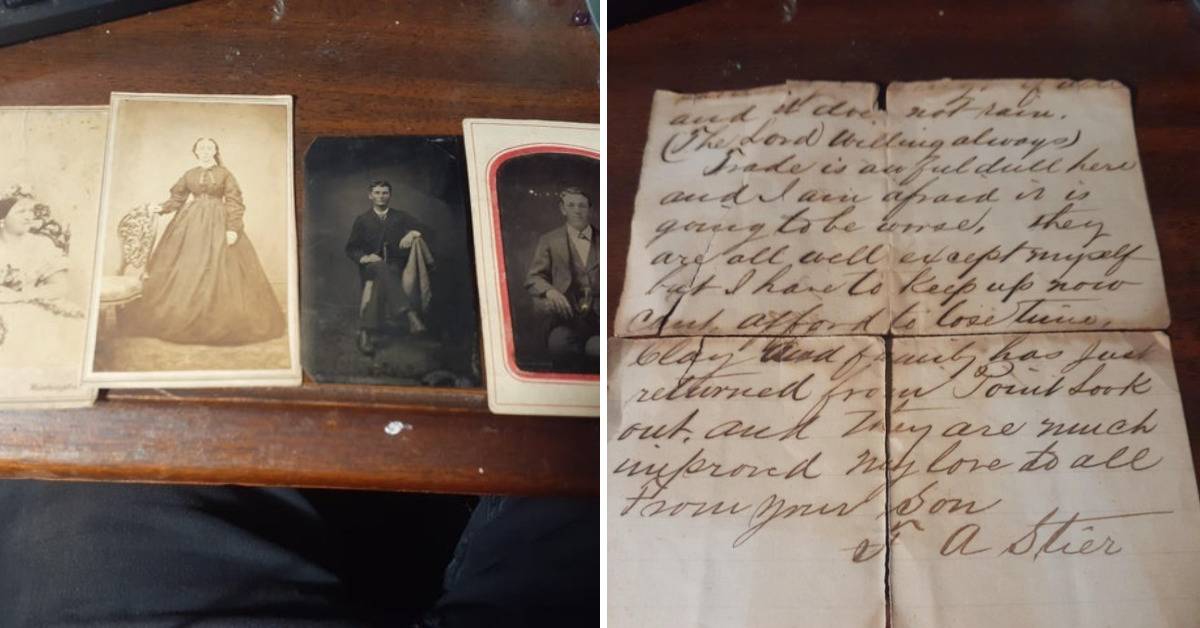 and it does not rain.
(The Lord Willing always)
Trade is awful dull here
and I am afraid it is
going to be worse, they
are all well except myself
but I have to keep up now
Cant afford to lose time,
Clay and family has just
returned from Point Look
out. and they are much
improved My love to all
From your Son
A Stier